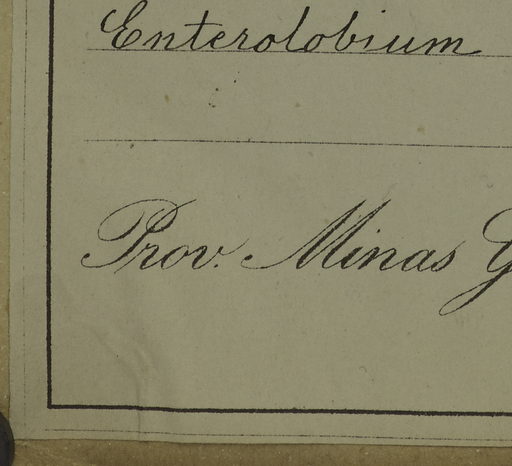 Enterolobium
Prov. Minas G